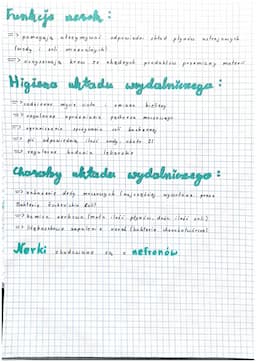 Funkcje nerek:
=> pomagają utrzymywać odpowiedni skład płynów ustrojowych
(wody i soli mineralnych)
=> oczyszczają krew ze zbędnych produktów przemiany materii
Higiena układu wydalniczego:
=> codzienne mycie ciała i zmiana bielizny
=> regularne opróżnianie pęcherza moczowego
=> ograniczenie spożywania soli kuchennej
=> pić odpowiednią ilość wody, około 2l
=> regularne badania lekarskie
Choroby układu wydalniczego:
=> zakażenie dróg moczowych (najczęściej wywołane przez
bakterie Escherichia coli)
=> kamica nerkowa (mała ilość płynów, dużo soli)
=> kłębuszkowe zapalenie nerek (bakterie chorobotwórcze)
Nerki zbudowane są z nefronów